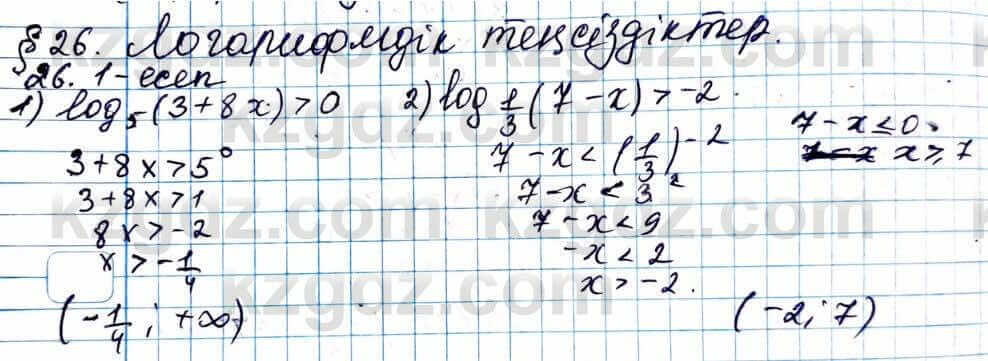 § 26. Логарифмдік теңсіздіктер.
26. 1-есеп
1) log₅(3+8x)>0
3+8x>5⁰
3+8x>1
8x>-2
x>-1/4
(-1/4; +∞)
2) log 1/3 (7-x)>-2.
7-x<(1/3)⁻²
7-x<3²
7-x<9
-x<2
x>-2.
7-x≤0.
x≥7
(-2; 7)
kzgdz.com